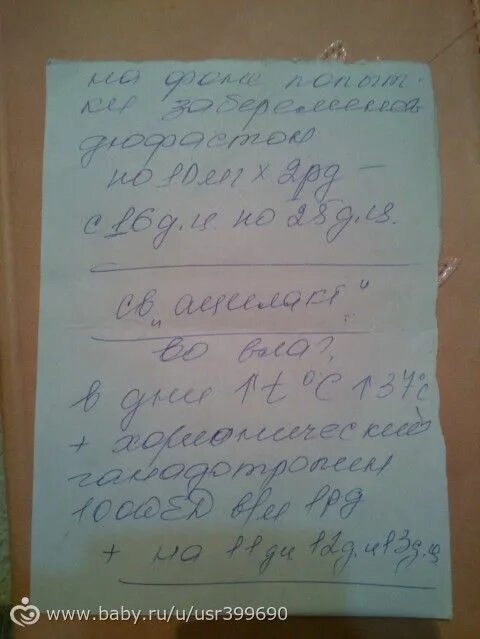 на фоне попыт-
ки забеременеть
дюфастон
по 10мг х 2рд –
с 16 д.ц. по 25 д.ц.
св "ацилакт"
во влаг.
в дни ↑t°C ↑37°C
+ хорионический
гонадотропин
1000ЕD в/м 1рд
+ на 11 дц 12д.ц 13д.ц
www.baby.ru/u/usr399690